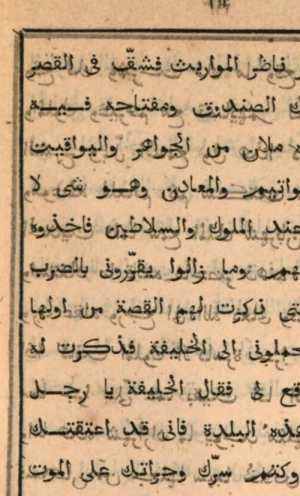 فاظر المواريث فشقّ فى القصر
الصندوق ومفتاحه فيه
ملان من الجواهر واليواقيت
والمعادن وهو شى لا
عند الملوك والسلاطين فاخذوه
وما زالوا يقرّرونى بالضرب
ذكرت لهم القصة من اولها
الى الخليفة فذكرت له
لى فقال الخليفة يا رجل
هذه البلدة فانى قد اعتقتك
سرّك وجراتك على الموت